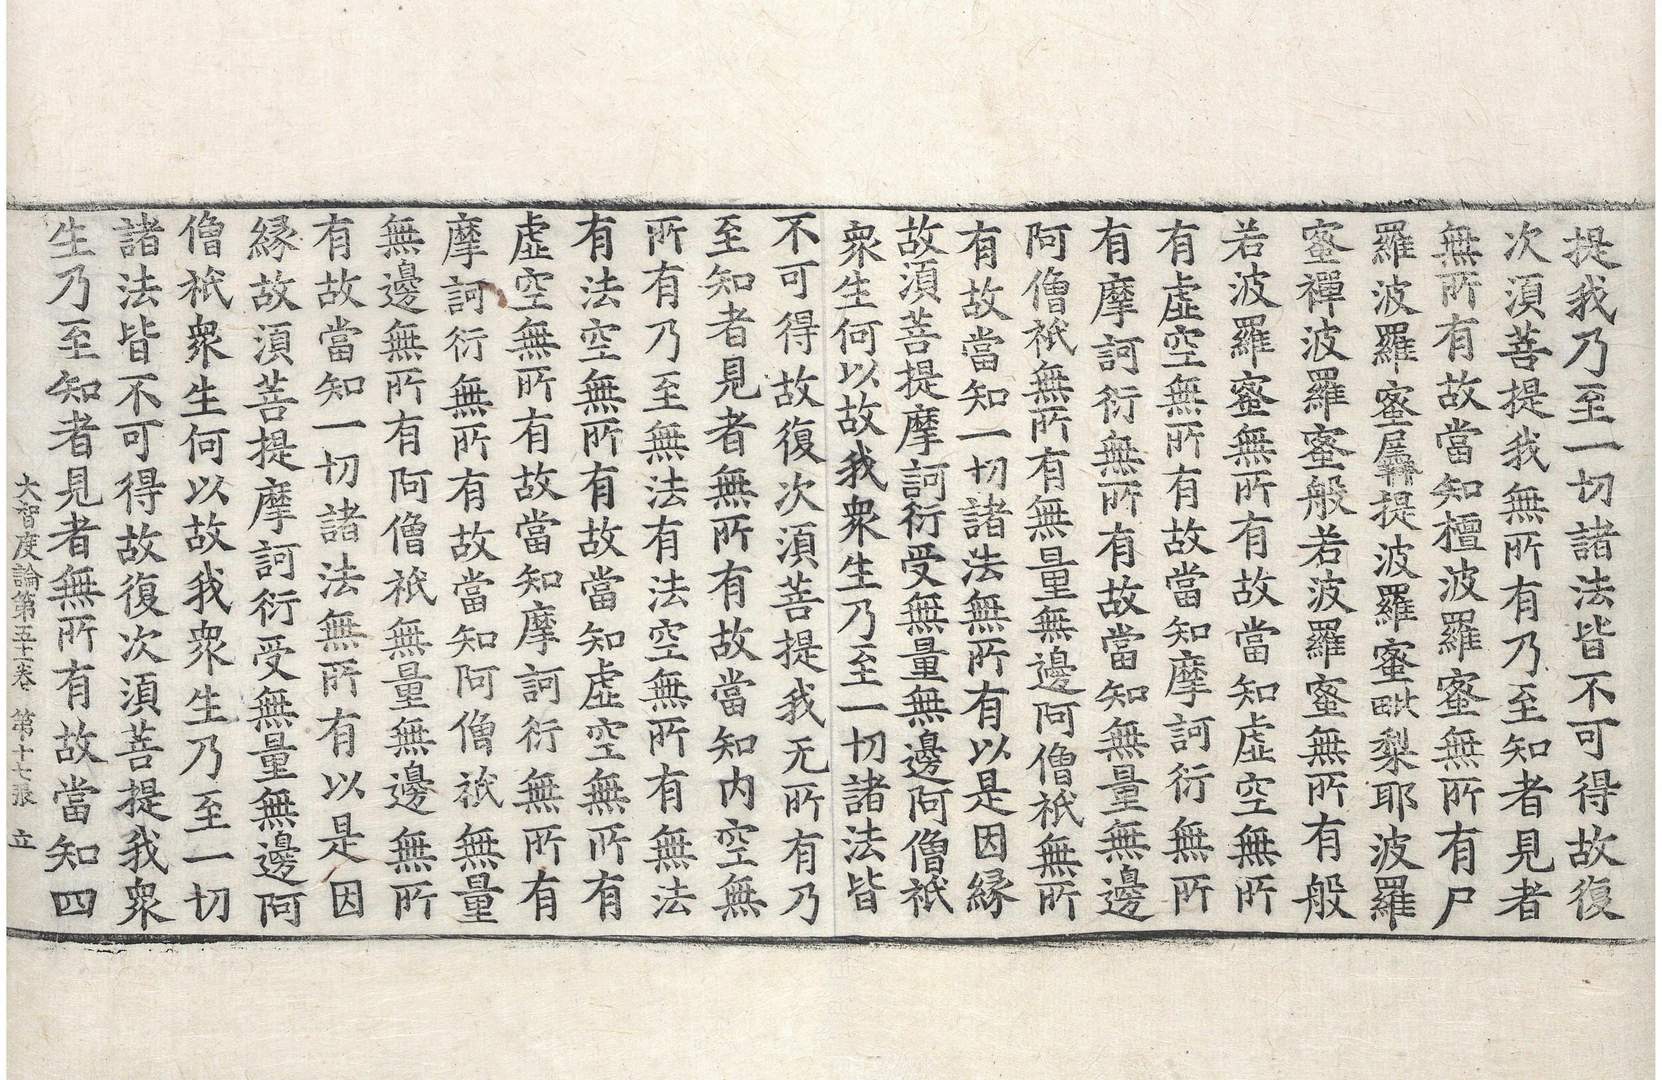 提我乃至一切諸法皆不可得故復
次湏菩提我無所有乃至知者見者
無所有故當知檀波羅蜜無所有尸
羅波羅蜜羼提波羅蜜毗梨耶波羅
蜜禪波羅蜜般若波羅蜜無所有般
若波羅蜜無所有故當知虛空無所
有虛空無所有故當知摩訶衍無所
有摩訶衍無所有故當知無量無邊
阿僧祇無所有無量無邊阿僧祇無所
有故當知一切諸法無所有以是因緣
故湏菩提摩訶衍受無量無邊阿僧祇
衆生何以故我衆生乃至一切諸法皆
不可得故復次湏菩提我无所有乃
至知者見者無所有故當知内空無
所有乃至無法有法空無所有無法
有法空無所有故當知虛空無所有
虛空無所有故當知摩訶衍無所有
摩訶衍無所有故當知阿僧祇無量
無邊無所有阿僧祇無量無邊無所
有故當知一切諸法無所有以是因
緣故湏菩提摩訶衍受無量無邊阿
僧祇衆生何以故我衆生乃至一切
諸法皆不可得故復次湏菩提我衆
生乃至知者見者無所有故當知四
大智度論第五十一卷 第十七張 立